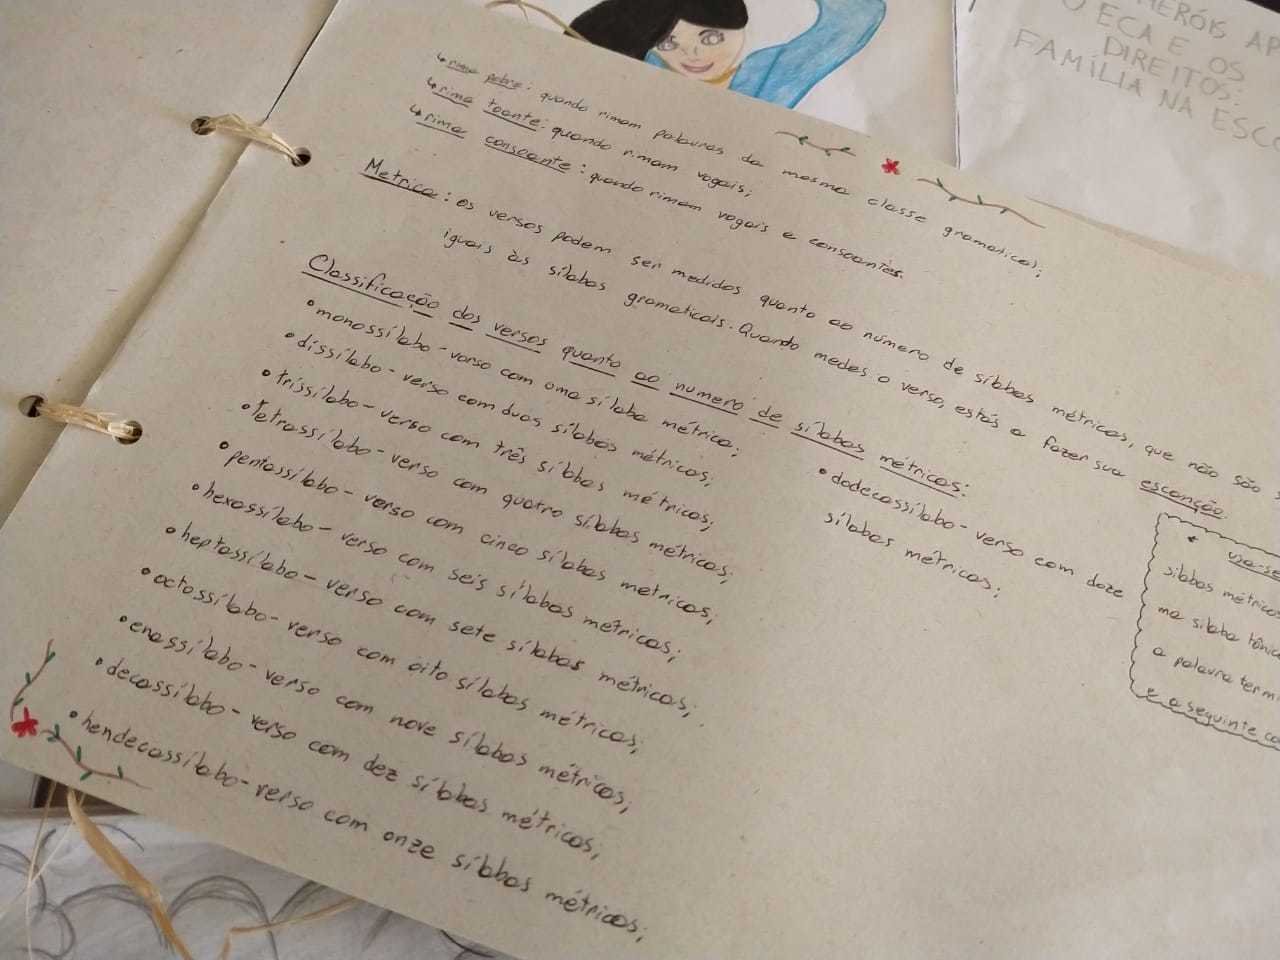 ↳ rima pobre: quando rimam palavras da mesma classe gramatical;
↳ rima toante: quando rimam vogais;
↳ rima consoante: quando rimam vogais e consoantes.
Metrica: os versos podem ser medidos quanto ao número de sílabas métricas, que não são
iguais às sílabas gramaticais. Quando medes o verso, estás a fazer sua escanção.
Classificação dos versos quanto ao numero de sílabas métricas:
• monossílabo - verso com uma sílaba métrica;
• dissílabo - verso com duas sílabas métricas;
• trissílabo - verso com três sílabas métricas;
• tetrassílabo - verso com quatro sílabas métricas;
• pentassílabo - verso com cinco sílabas metricas;
• hexassílabo - verso com seis sílabas métricas;
• heptassílabo - verso com sete sílabas métricas;
• octossílabo - verso com oito sílabas métricas;
• enassílabo - verso com nove sílabas métricas;
• decassílabo - verso com dez sílabas métricas;
• hendecassílabo - verso com onze sílabas métricas;
• dodecassílabo - verso com doze
sílabas métricas;
* usa-se
sílabas métrica
na sílaba tônic
a palavra term
e a seguinte co
HERÓIS AP
O ECA E OS
DIREITOS:
FAMÍLIA NA ESCO